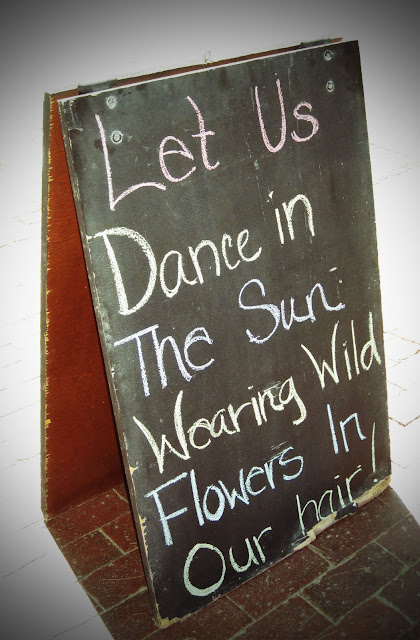 Let Us
Dance in
The Sun
Wearing Wild
Flowers In
Our hair!